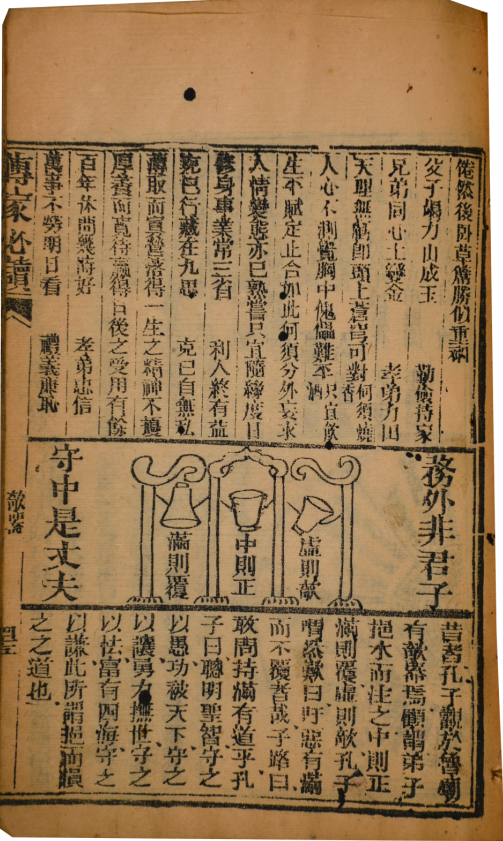 倦然後卧草薦勝似重裀
父子竭力山成玉　勤儉持家
兄弟同心土變金　孝弟力田
天理無虧卽頭上蒼穹可對何須燒香
人心不測覺胸中傀儡難平只宜飲酒
生平賦定止合如此何須分外妄求
人情變態亦已熟嘗只宜隨緣度日
修身事業常三省　利人終有益
克己行藏在九思　克己自無私
薄取而寡營落得一生之精神不
厚養而寬待贏得日後之受用有餘
百年休問幾時好　孝弟忠信
萬事不勞明日看　禮義廉恥
傳家必讀
務外非君子
虛則欹
中則正
滿則覆
守中是丈夫
欹器
昔者孔子觀於魯廟
有欹器焉顧謂弟子
挹水而注之中則正
滿則覆虛則欹孔子
喟然歎曰吁惡有滿
而不覆者哉子路曰
敢問持滿有道乎孔
子曰聰明聖智守之
以愚功被天下守之
以讓勇力撫世守之
以怯富有四海守之
以謙此所謂挹而損
之之道也